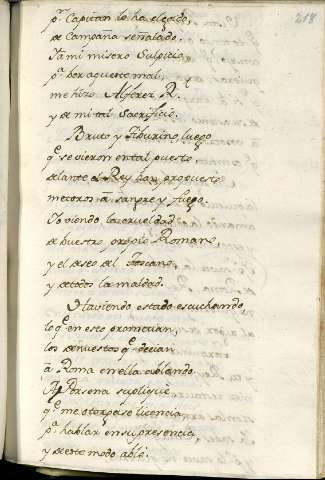 218
pr. Capitan lo ha elegido,
de Campaña señalado.
Ya mi misero Sulpicio,
pr. dar aqueste mal,
me hizo Alferez Rl.
y de mi tal Sacrificio.
Bruto y Tiburino, luego
qe. se vieron en tal puesto
delante el Rey han propuesto
meternos à sangre, y fuego.
Yo viendo la crueldad
de vuestro propio Romano,
y el deseo del Toscano,
y de todos la maldad.
Haviendo estado escuchando
lo qe. en esto prometian,
los denuestos qe. decian
à Roma en ella ablando.
A Persena supliquè
qe. me otorgase licencia,
pa. hablar en su presencia
y de este modo ablè.